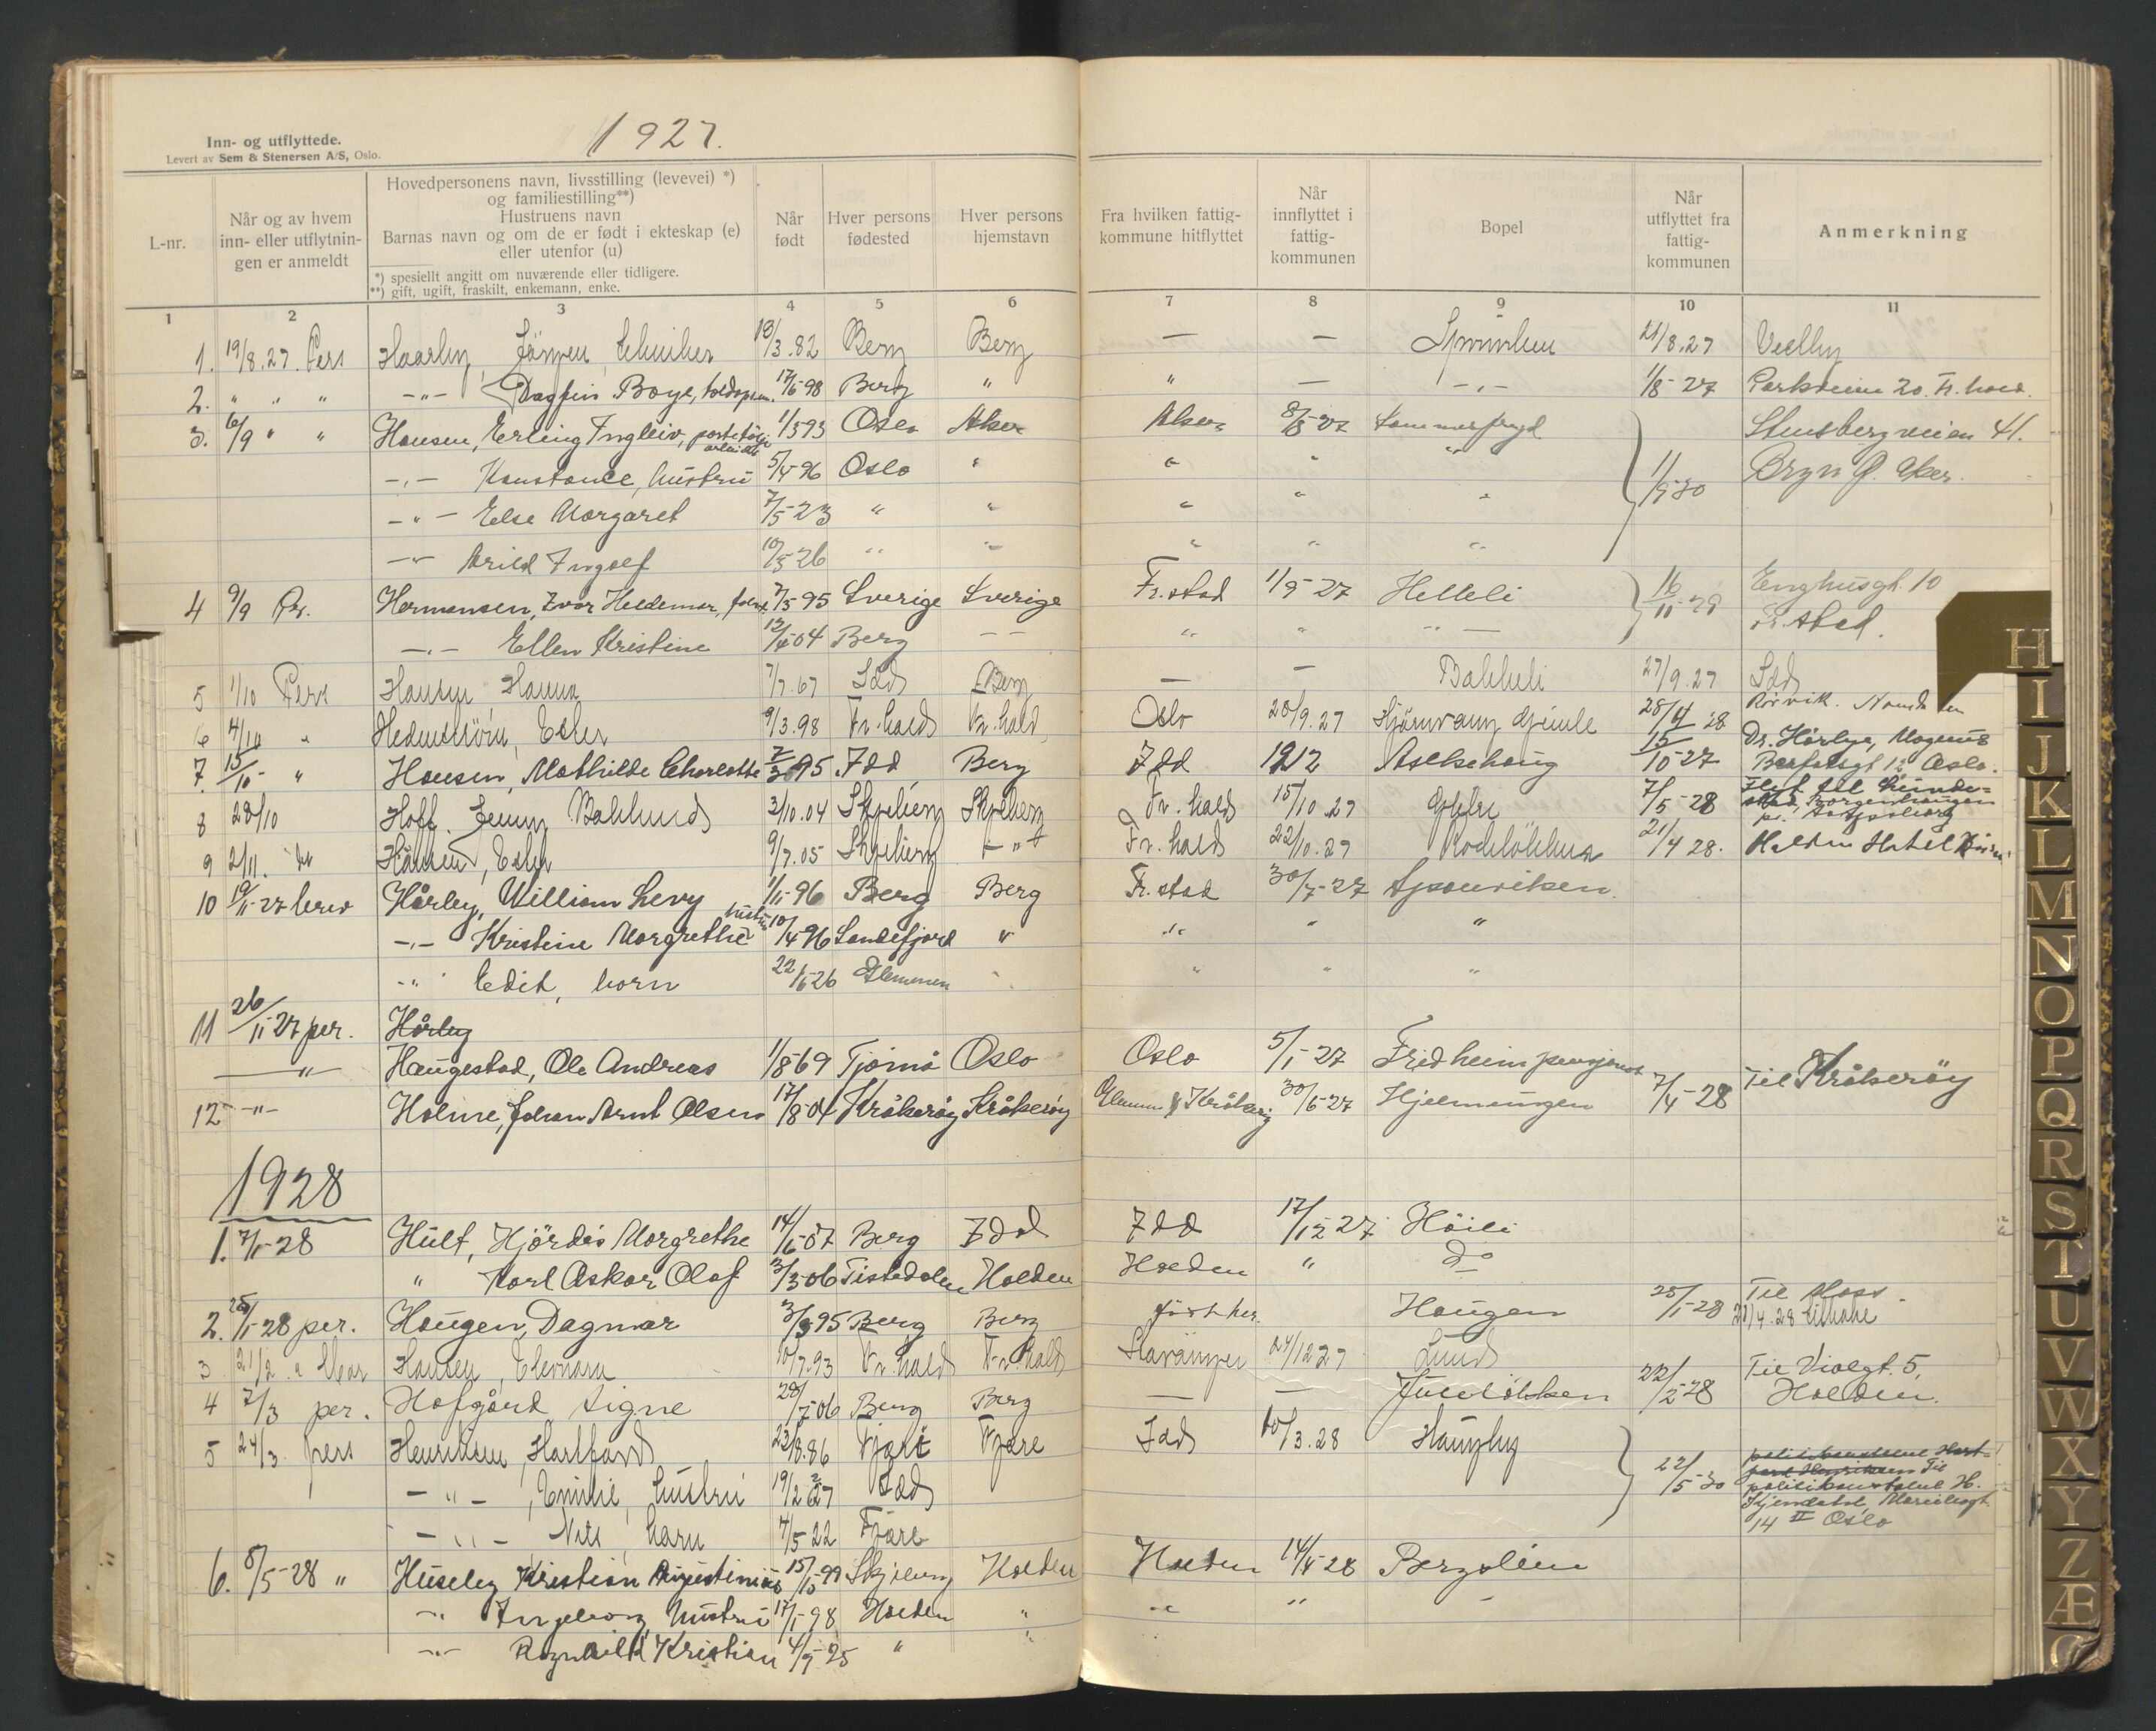 1927.
Inn- og utflyttede.
Levert av Sem & Stenersen A/S, Oslo.
L-nr.
Når og av hvem
inn- eller utflytnin-
gen er anmeldt
Hovedpersonens navn, livsstilling (levevei) *)
og familiestilling**)
Hustruens navn
Barnas navn og om de er født i ekteskap (e)
eller utenfor (u)
*) spesiellt angitt om nuværende eller tidligere.
**) gift, ugift, fraskilt, enkemann, enke.
Når
født
Hver persons
fødested
Hver persons
hjemstavn
Fra hvilken fattig-
kommune hitflyttet
Når
innflyttet i
fattig-
kommunen
Bopel
Når
utflyttet fra
fattig-
kommunen
Anmerkning
1 2 3 4 5 6 7 8 9 10 11
1. 19/8.27. Pers Haarby, Jörgen, 18/3.82 Berg Berg — — 21/8.27 Veelby
2. " " " -"- Dagfin Boye, 17/6-98 Berg " " — -"- 1/8-27 Parkveien 20. Fr.hald.
3. 6/9 " " Hansen, Erling Ingleiv, 1/593 Oslo Aker Aker 8/8-27 Sommerfryd Stensbergveien 41.
-"- Konstanse, hustru 5/4-96 Oslo " " " " 1/9-30 Bryn Ø. Aker.
-"- Else Margaret 7/5-23 " " " " "
-"- Arild Ingolf 10/5 26 " " " " "
4 9/9 Per. Hermansen, Ivar Heldemar, 7/5-95 Sverige Sverige Fr.stad 1/9-27 Helleli 16/11-29 Enghusgt. 10
-"- Ellen Kristine 12/4-04 Berg -- " " " — Fr.stad.
5 1/10 Pers Hansen, Hanna 7/7.67 Idd Berg — — Bakkeli 27/9.27 Idd
6 4/10 " Hedenström, Ester 9/3.98 Fr.hald Fr.hald Oslo 20/9.27 28/4 28 Rörvik.
7. 15/10- " Hansen, Mathilde Charlotte 2/3 95 Idd Berg Idd 1912 Askehaug 15/10-27 Dr. Hårbye, Magnus
Oslo.
8 28/10 Hoff. Jenny Baklund 3/10.04 Skjeberg Skjeberg Fr. hald 15/10.27 7/5-28 Flyt til
Borgenhaugen
9 2/11. Hansen, Ester 9/7.05 Skjeberg -"- Fr. hald 22/10.27 21/4 28. Halden Hotel
10 19/11-27 brev Hårby, William Levy 1/11-96 Berg Berg Fr.stad 30/7-27 Sponviken.
-"- Kristine Margrethe hustru 10/4-96 Sandefjord " " " "
-"- Edit, barn 22/6 26 Glemmen " " " "
11 26/11-27 per. Hårby
—"— Haugestad, Ole Andreas 1/8-69 Tjømø Oslo Oslo 5/1-27 Fridheim pensjonat
12 -"- Holme, Johan Arnt Olsen 17/8-04 Kråkerøy Kråkerøy Glemmen Kråkerøy 30/6-27 Hjelmungen 7/4-28 Til Kråkerøy
1928
1. 7/1-28 Hult, Hjördis Margrethe 14/6-07 Berg Idd Idd 17/12 27 Höili
" Karl Oskar Olaf 3/3 06 Tistedalen Halden Halden " do
2. 25/1-28 per. Haugen, Dagmar 3/3 95 Berg Berg født her. Haugen 25/1-28 Til Moss.
21/4.28 tilbake
3 21/2 " Hansen, Eleonora 10/7.93 Fr. hald Fr. hald Stavanger 24/12 27 Lund
4 7/3 per. Hofgård Signe 28/7-06 Berg Berg — — 22/2-28 Til Violgt. 5,
Halden.
5 24/3 pers Henriksen, Hartford 23/8.86 Fjære Fjære Idd 10/3.28 Haugby 22/5-30
-"-, Emilie, hustru 19/2 Idd
-"- Nils, barn 4/5 22 Fjære
politikonstabel Hart-
ford Henriksen Til
politikonstabel H.
14 II Oslo
6. 8/5-28 " Huseby Kristian Augustinius 15/10-99 Skjeberg Halden Halden 14/4-28 Bergslien
-"- Ingeborg, hustru 17/1-98 Halden " " "
-"- Ragnhild Kristian 4/9-25 " "
H
I
J
K
L
M
N
O
P
Q
R
S
T
U
V
W
X
Y
Z
Æ